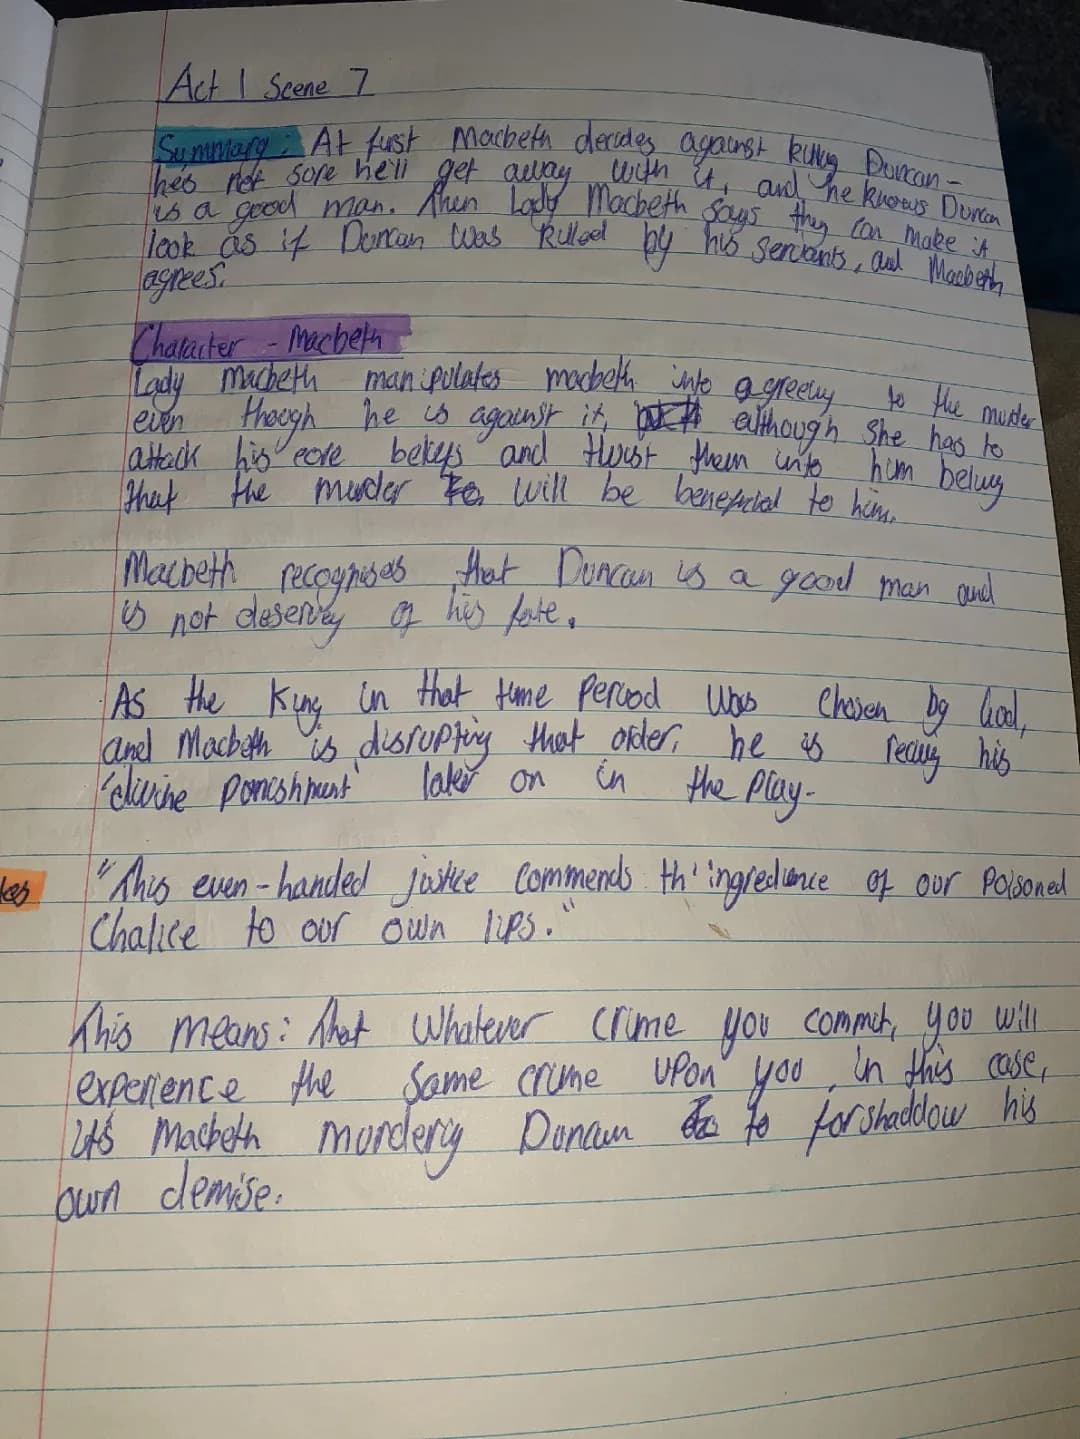 Act 1 Scene 7
Summary: At first Macbeth decides against killing Duncan -
he's not sore he'll get away with it, and he knows Duncan
is a good man. Then Lady Macbeth says they can make it
look as if Duncan was killed by his servants, and Macbeth
agrees.
Character - Macbeth
Lady Macbeth manipulates macbeth into agreeing to the murder
even though he is against it, although she has to
attack his core beliefs and twist them into him being
that the murder will be beneficial to him.
Macbeth recognises that Duncan is a good man and
is not deserving of his fate.
As the King in that time period was chosen by God,
and Macbeth is disrupting that order, he is his
'divine ponishment' later on in the play.
kes
"This even-handed jostice commends th' ingredience of our poisoned
Chalice to our own lips."
This means: That whatever crime you commit, you will
experience the same crime upon you, in this case,
it's Macbeth murdering Duncan to forshaddow his
own demise.